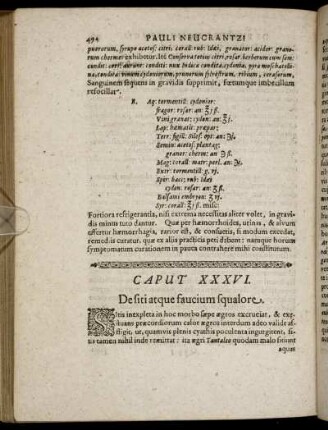 494 PAULI NEUCRANTZI
puerorum, syrupo acetos: citri. corall: rub: Idæi, granator: acidor: grano-
rum chermes exhibetur. Hæ Conservæ totius citri, rosar. berborum cum sem:
condit: cort: aurant: condit: nux Indica condita, cydonia, pyra moschatellina,
condita: vinum cydoniorum, prunorum silvestrium, ribium, cerasorum,
Sanguinem sequens in gravidis supprimit, fœtumque imbecillum
refocillat.
R. Aq: tormentill: cydonior:
fragor: rosar: an: ℥ jß.
Vini granat: cydon: an: ℥ j.
Lap: hæmatit: præpar:
Terr: sigill: Siles: opt: an: ℈ß.
Semin: acetos: plantag:
granor: cherm: an: ℈ ß.
Mag: corall: matr: perl. an: ℈j.
Extr: tormentill: g. vj.
Spir: bacc: rub: Idæi
cydon: rosar: an: ʒ ß.
Balsami embryon: ʒ vj.
Syr: corall: ℥ jß. misc:
Fortiora refrigerantia, nisi extrema necessitas aliter volet, in gravi-
dis minus tuto dantur. Quæ per hæmorrhoides, urinam, & alvum
affertur hæmorrhagia, rarior est, & consuetis, si modum excedat,
remediis curatur, quæ ex aliis practicis peti debent: namque horum
symptomatum curationem in pauca contrahere mihi constitutum.
CAPUT XXXVI.
De siti atque faucium squalore.
Sitis inexpleta in hoc morbo sæpe ægros excruciat, & ex-
istuans præcordiorum calor ægros interdum adeo valide af-
fligit, ut, quamvis plenis cyathis poculenta ingurgitent, si-
tis tamen nihil inde remittat: ita ægri Tantaleo quodam malo sitiunt
aquas